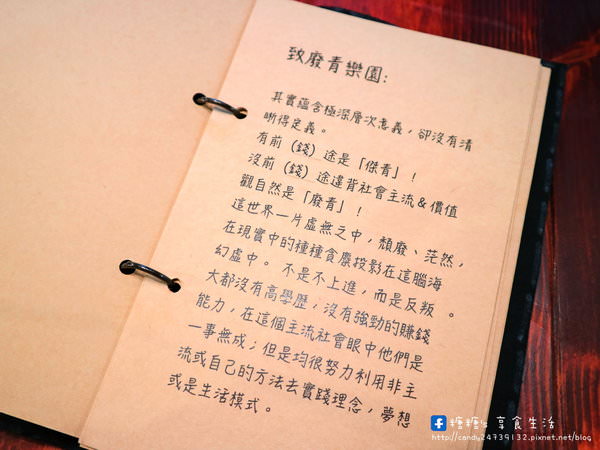 致廢青樂園:
其實蘊含極深層次意義，卻沒有清
晰得定義。
有前（錢）途是「傑青」！
沒前（錢）途違背社會主流&價值
觀自然是「廢青」！
這世界一片虛無之中，頹廢、茫然，
在現實中的種種貪糜投影在這腦海
幻虛中。 不是不上進，而是反叛 。
大都沒有高學歷，沒有強勁的賺錢
能力，在這個主流社會眼中他們是
一事無成；但是均很努力利用非主
流或自己的方法去實踐理念，夢想
或是生活模式。
糖糖's 享食生活
http://candy24739132.pixnet.net/blog